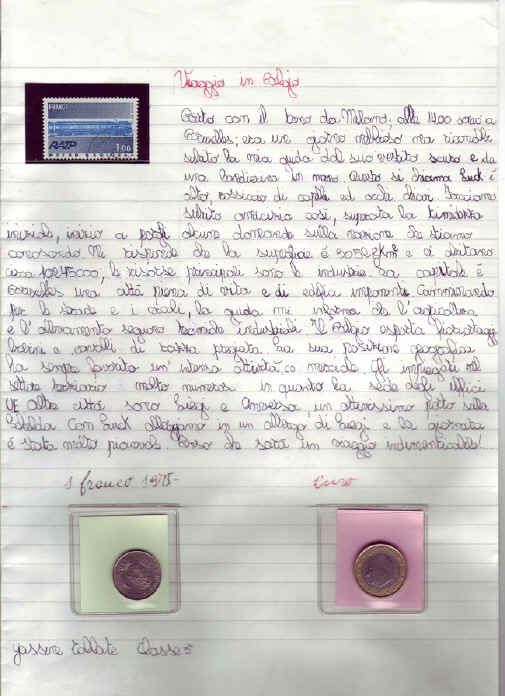 Viaggio in Belgio
FRANCE
RATP
1.06
Parto con il treno da Milano, alle 14.00 sono a
Bruxelles; era un giorno nebbioso ma riconobbi
subito la mia guida dal suo vestito scuro e da
una bandierina in mano. Questo si chiama Luck è
alto, rossiccio di capelli ed occhi chiari. Facciamo
subito amicizia così, superata la timidezza
iniziale, inizio a porgli alcune domande sulla nazione che stiamo
conoscendo. Mi risponde che la superficie è Km² e ci abitano
circa le risorse principali sono le industrie. La capitale è
Bruxelles una città piena di vita e di edifici imponenti. Camminando
per le strade e i canali, la guida mi informa che l'agricoltura
e l'allevamento seguono tecniche industriali. Il Belgio esporta
bovini e cavalli di razza pregiata. La sua posizione geografica
ha sempre favorito un'intensa attività commerciale. Gli impiegati nel
settore terziario molto numerosi in quanto ha sede degli uffici
UE. Altre città sono Liegi e Anversa, un attivissimo porto sulla
Schelda. Con Luck alloggiamo in un albergo di Liegi e la giornata
è stata molto piacevole. Penso che sarà un viaggio indimenticabile!
1 franco 1975
Euro
yassine Classe